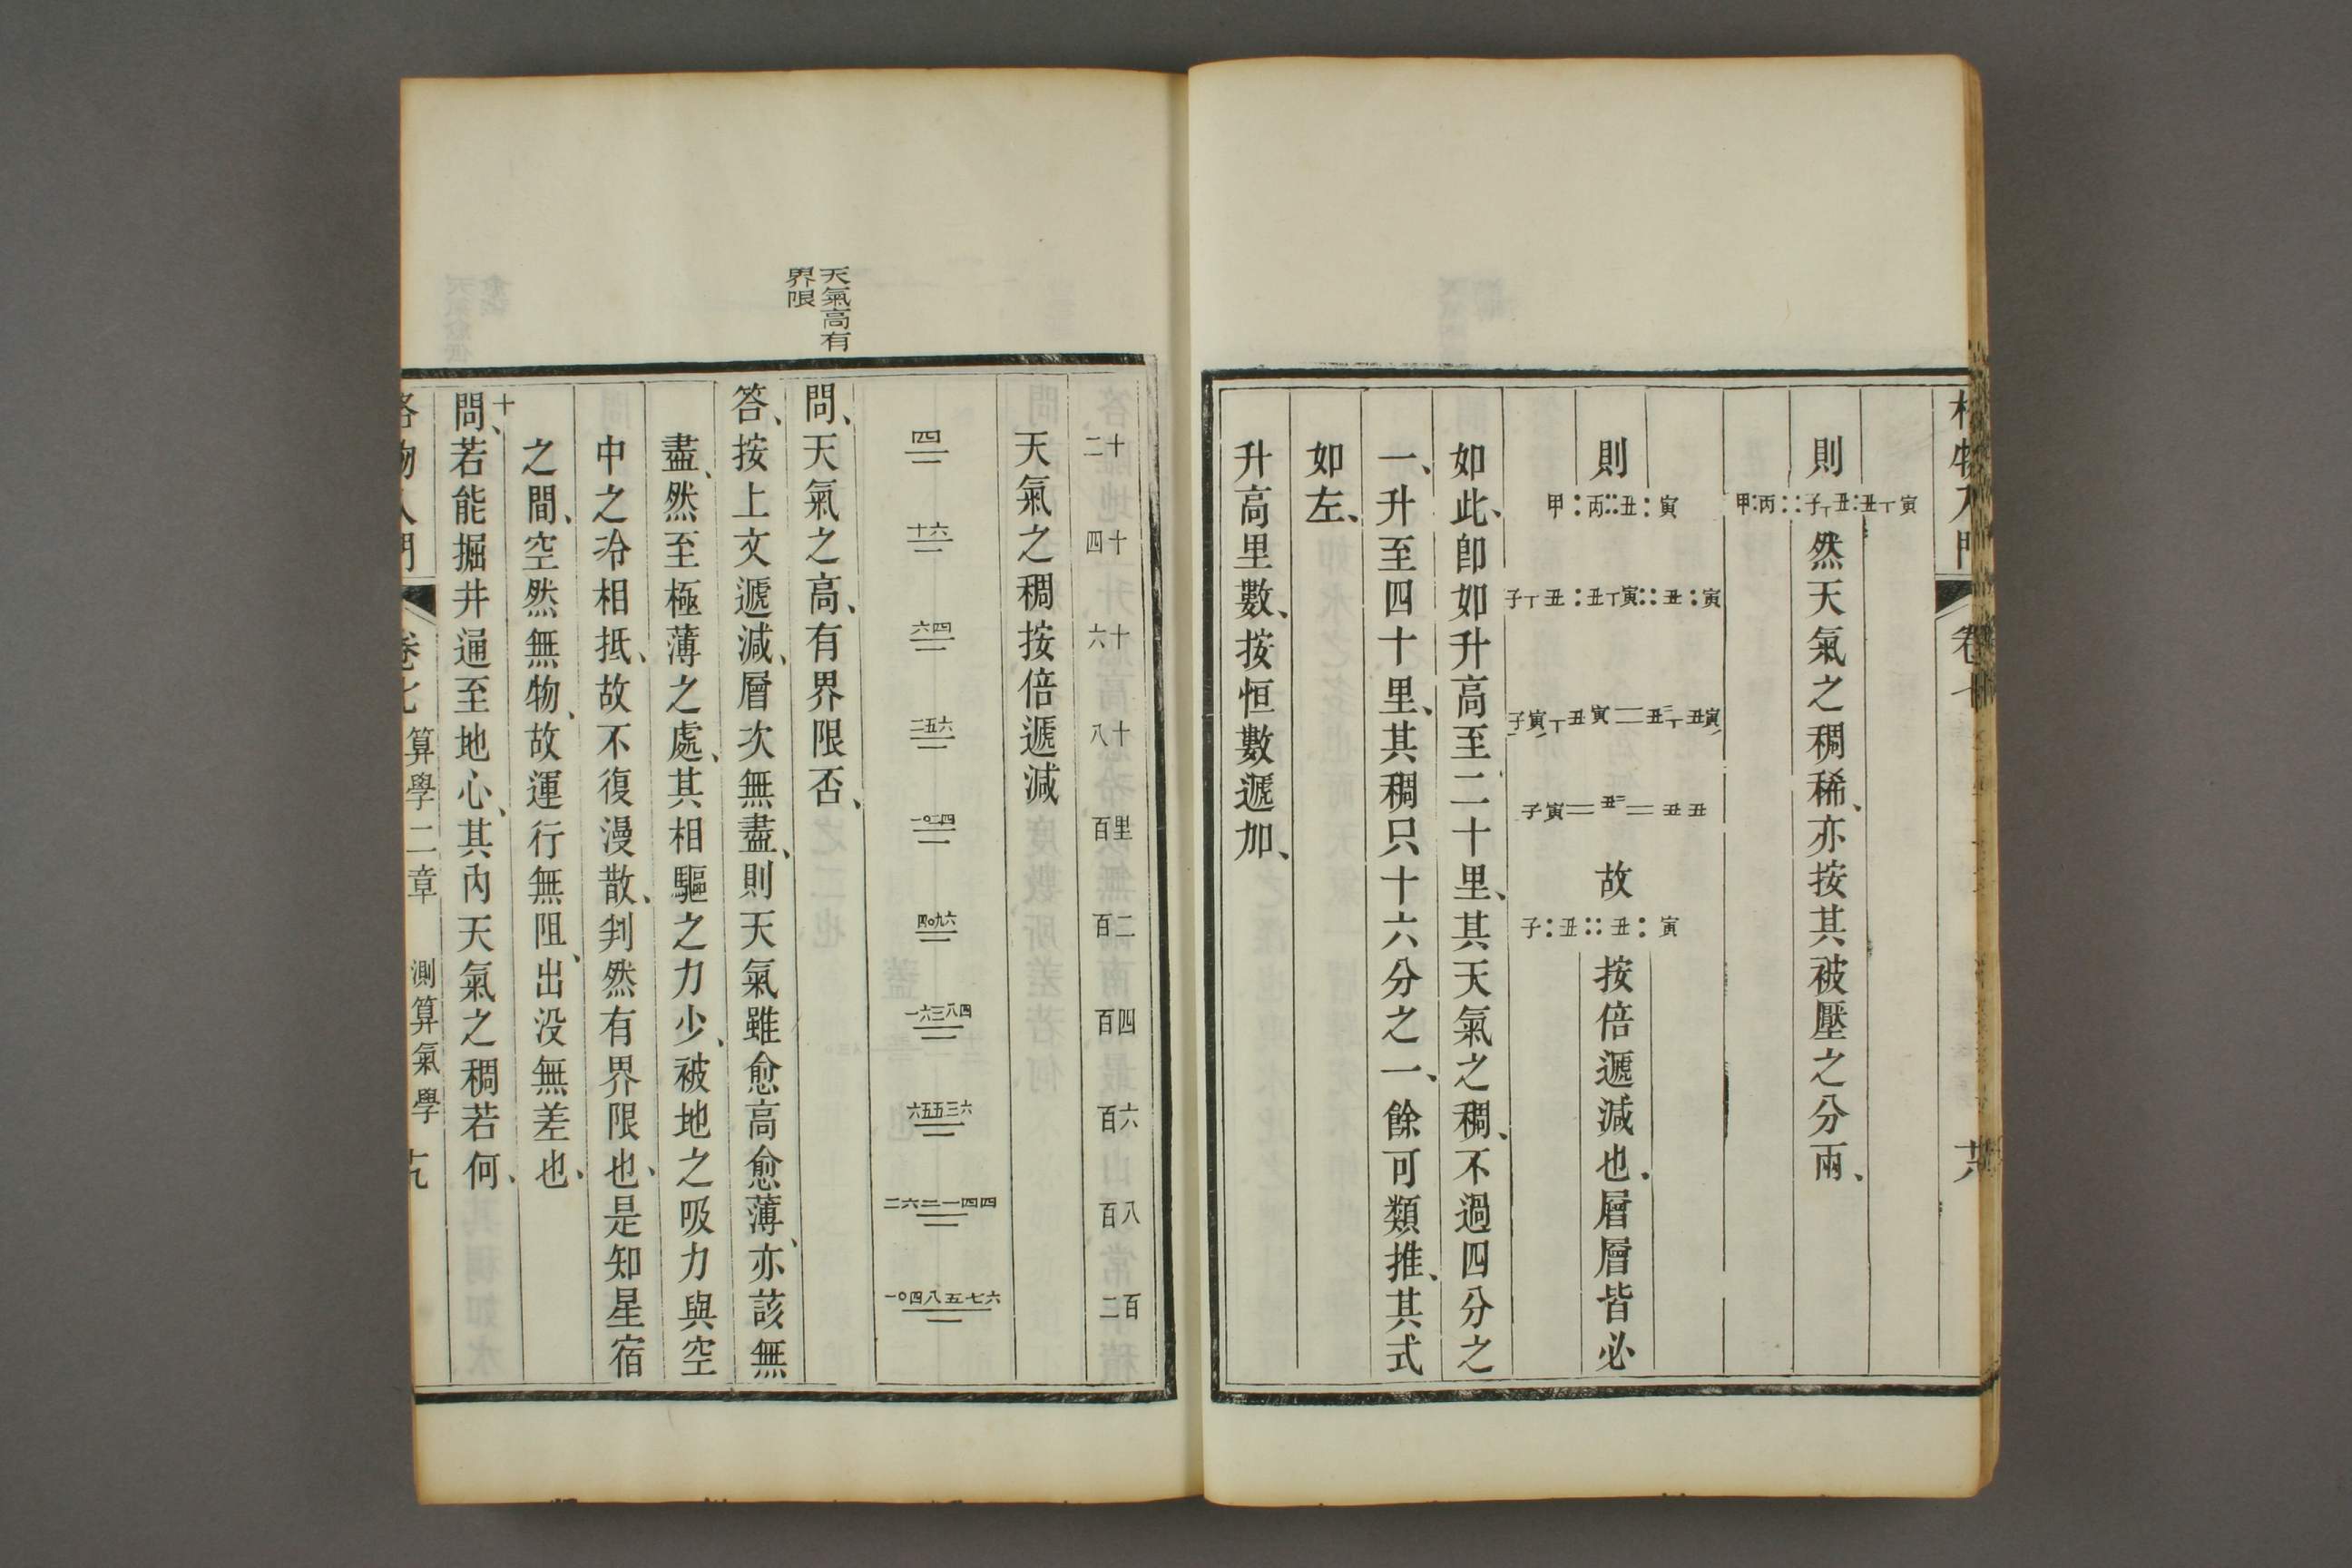 格物入門 卷七
則 甲:丙::子丅丑:丑丅寅 然天氣之稠稀、亦按其被壓之分兩、
則 甲:丙::丑:寅
子丅丑:丑丅寅::丑:寅
子寅丅丑寅＝丑二丅丑寅
子寅＝丑二＝丑丑
故 子:丑::丑:寅
按倍遞減也、層層皆必
如此、卽如升高至二十里、其天氣之稠、不過四分之
一、升至四十里、其稠只十六分之一、餘可類推、其式
如左、
升高里數、按恒數遞加、
二十 四十 六十 八十 百里 百二 百四 百六 百八 二百
天氣之稠按倍遞減
四 一
十六 一
六四 一
二五六 一
一〇二四 一
四〇九六 一
一六三八四 一
六五五三六 一
二六二一四四 一
一〇四八五七六 一
天氣高有
界限
問、天氣之高、有界限否、
答、按上文遞減、層次無盡、則天氣雖愈高愈薄、亦該無
盡、然至極薄之處、其相驅之力少、被地之吸力與空
中之冷相抵、故不復漫散、判然有界限也、是知星宿
之間、空然無物、故運行無阻、出没無差也、
十
問、若能掘井通至地心、其內天氣之稠若何、
格物入門 卷七 算學二章 測算氣學 十九